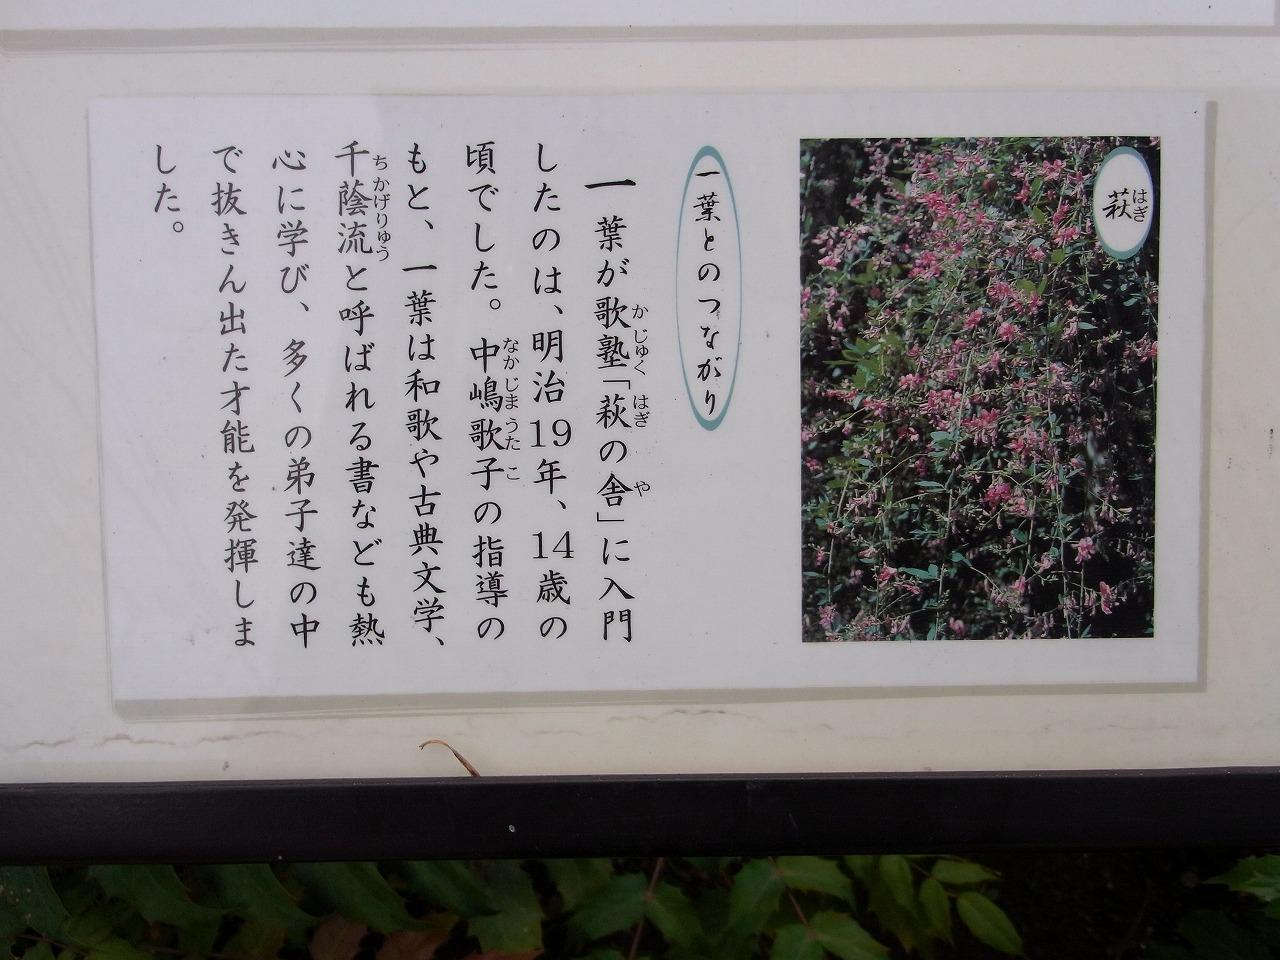 萩
はぎ
一葉とのつながり
一葉が歌塾「萩の舎」に入門
かじゅく はぎ や
したのは、明治19年、14歳の
頃でした。中嶋歌子の指導の
なかじまうたこ
もと、一葉は和歌や古典文学、
千蔭流と呼ばれる書なども熱
ちかげりゅう
心に学び、多くの弟子達の中
で抜きん出た才能を発揮しま
した。